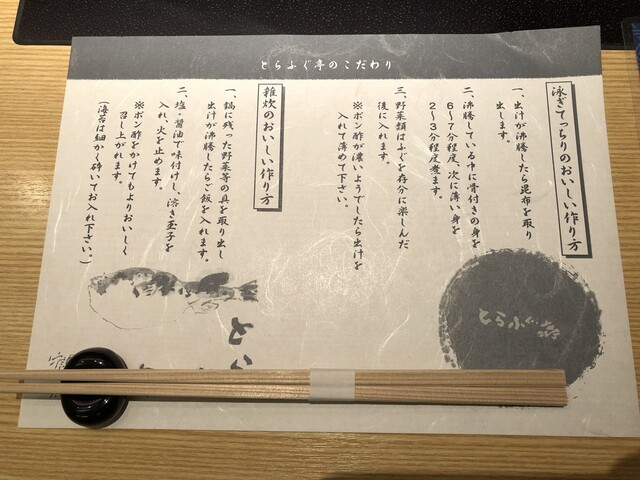 とらふぐ亭のこだわり
泳ぎてっちりのおいしい作り方
一、出汁が沸騰したら昆布を取り
出します。
二、沸騰している中に骨付きの身を
6~7分程度、次に薄い身を
2~3分程度煮ます。
三、野菜類はふぐを存分に楽しんだ
後に入れます。
※ポン酢が濃いようでしたら出汁を
入れて薄めて下さい。
雑炊のおいしい作り方
一、鍋に残った野菜等の具を取り出し
出汁が沸騰したらご飯を入れます。
二、塩・醤油で味付けし、溶き玉子を
入れ、火を止めます。
※ポン酢をかけてもよりおいしく
召し上がれます。
(海苔は細かく砕いてお入れ下さい。)
とらふぐ
とら